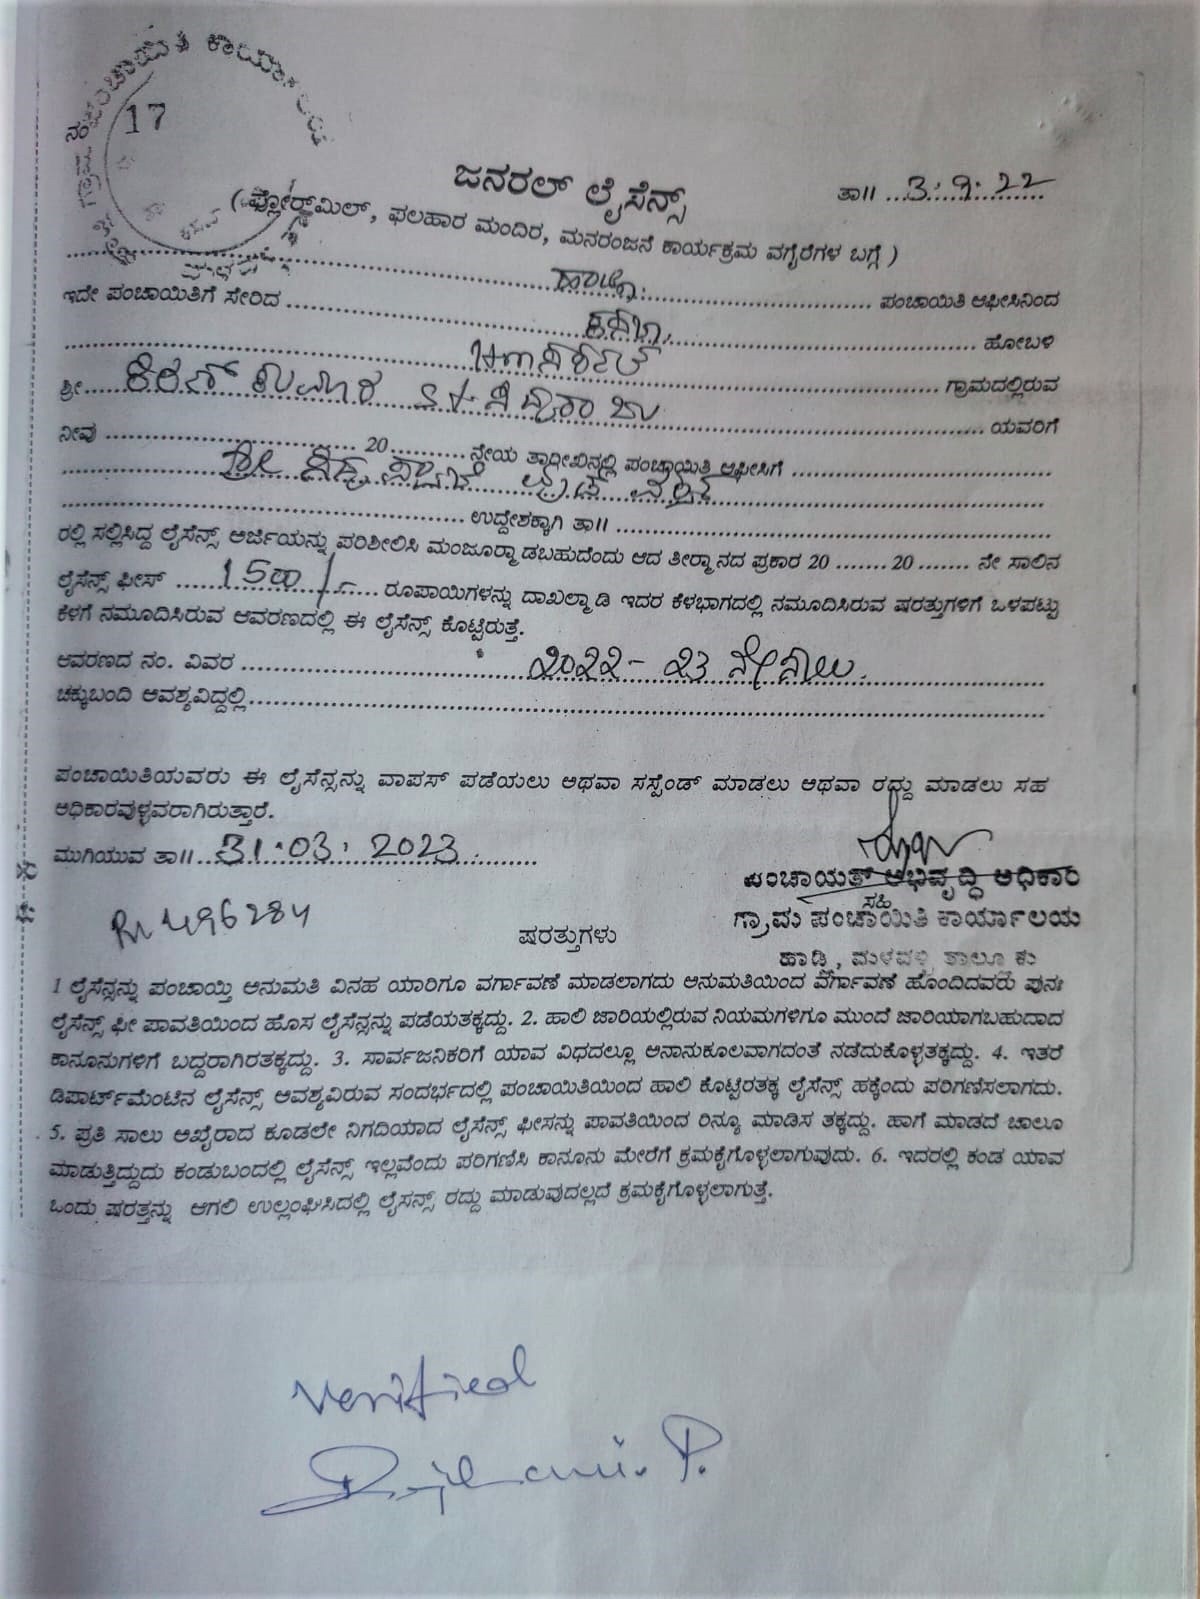 ಪಂಚಾಯಿತಿ ಕಾರ್ಯಾಲಯ
ನಂ 17
ಜನರಲ್ ಲೈಸೆನ್ಸ್
ತಾ॥ ... 3:9:22
(ಫ್ಲೋರ್‌ಮಿಲ್, ಫಲಹಾರ ಮಂದಿರ, ಮನರಂಜನೆ ಕಾರ್ಯಕ್ರಮ ವಗೈರೆಗಳ ಬಗ್ಗೆ)
ಹಾಡ್ಲಿ ಪಂಚಾಯಿತಿ ಆಫೀಸಿನಿಂದ
ಇದೇ ಪಂಚಾಯಿತಿಗೆ ಸೇರಿದ ಕಸಬಾ ಹೋಬಳಿ
ಗ್ರಾಮದಲ್ಲಿರುವ
ಶ್ರೀ ಕಿರಣ್ ಕುಮಾರ S/o ಸಿದ್ದರಾಜು ಯವರಿಗೆ
ನೀವು ........ 20 ........ ನ್ನೇಯ ತಾರೀಖಿನಲ್ಲಿ ಪಂಚಾಯಿತಿ ಆಫೀಸಿಗೆ ........
ಶ್ರೀ
........ ಉದ್ದೇಶಕ್ಕಾಗಿ ತಾ॥ ........
ರಲ್ಲಿ ಸಲ್ಲಿಸಿದ್ದ ಲೈಸೆನ್ಸ್ ಅರ್ಜಿಯನ್ನು ಪರಿಶೀಲಿಸಿ ಮಂಜೂರ್‍ಮಾಡಬಹುದೆಂದು ಆದ ತೀರ್‍ಮಾನದ ಪ್ರಕಾರ 20 ........ 20 ........ ನೇ ಸಾಲಿನ
ಲೈಸೆನ್ಸ್ ಫೀಸ್ ... 1500/- ... ರೂಪಾಯಿಗಳನ್ನು ದಾಖಲ್ಮಾಡಿ ಇದರ ಕೆಳಭಾಗದಲ್ಲಿ ನಮೂದಿಸಿರುವ ಷರತ್ತುಗಳಿಗೆ ಒಳಪಟ್ಟು
ಕೆಳಗೆ ನಮೂದಿಸಿರುವ ಆವರಣದಲ್ಲಿ ಈ ಲೈಸೆನ್ಸ್ ಕೊಟ್ಟಿರುತ್ತೆ.
ಆವರಣದ ನಂ. ವಿವರ ........ 2022 - 23 ನೇ ಸಾಲು
ಚಕ್ಕುಬಂದಿ ಅವಶ್ಯವಿದ್ದಲ್ಲಿ ........
ಪಂಚಾಯಿತಿಯವರು ಈ ಲೈಸೆನ್ಸನ್ನು ವಾಪಸ್ ಪಡೆಯಲು ಅಥವಾ ಸಸ್ಪೆಂಡ್ ಮಾಡಲು ಅಥವಾ ರದ್ದು ಮಾಡಲು ಸಹ
ಅಧಿಕಾರವುಳ್ಳವರಾಗಿರುತ್ತಾರೆ.
ಮುಗಿಯುವ ತಾ॥ .. 31:03:2023
ಪಂಚಾಯತ್ ಅಭಿವೃದ್ಧಿ ಅಧಿಕಾರಿ
ಸಹಿ
ಗ್ರಾಮ ಪಂಚಾಯಿತಿ ಕಾರ್ಯಾಲಯ
ಹಾಡ್ಲಿ, ಮಳವಳ್ಳಿ ತಾಲೂಕು
496284
ಷರತ್ತುಗಳು
1 ಲೈಸೆನ್ಸನ್ನು ಪಂಚಾಯ್ತಿ ಅನುಮತಿ ವಿನಹ ಯಾರಿಗೂ ವರ್ಗಾವಣೆ ಮಾಡಲಾಗದು ಅನುಮತಿಯಿಂದ ವರ್ಗಾವಣೆ ಹೊಂದಿದವರು ಪುನಃ
ಲೈಸೆನ್ಸ್ ಫೀ ಪಾವತಿಯಿಂದ ಹೊಸ ಲೈಸೆನ್ಸನ್ನು ಪಡೆಯತಕ್ಕದ್ದು. 2. ಹಾಲಿ ಜಾರಿಯಲ್ಲಿರುವ ನಿಯಮಗಳಿಗೂ ಮುಂದೆ ಜಾರಿಯಾಗಬಹುದಾದ
ಕಾನೂನುಗಳಿಗೆ ಬದ್ದರಾಗಿರತಕ್ಕದ್ದು. 3. ಸಾರ್ವಜನಿಕರಿಗೆ ಯಾವ ವಿಧದಲ್ಲೂ ಅನಾನುಕೂಲವಾಗದಂತೆ ನಡೆದುಕೊಳ್ಳತಕ್ಕದ್ದು. 4. ಇತರೆ
ಡಿಪಾರ್ಟ್‌ಮೆಂಟಿನ ಲೈಸೆನ್ಸ್ ಅವಶ್ಯವಿರುವ ಸಂದರ್ಭದಲ್ಲಿ ಪಂಚಾಯಿತಿಯಿಂದ ಹಾಲಿ ಕೊಟ್ಟಿರತಕ್ಕ ಲೈಸೆನ್ಸ್ ಹಕ್ಕೆಂದು ಪರಿಗಣಿಸಲಾಗದು.
5. ಪ್ರತಿ ಸಾಲು ಅಖೈರಾದ ಕೂಡಲೇ ನಿಗದಿಯಾದ ಲೈಸೆನ್ಸ್ ಫೀಸನ್ನು ಪಾವತಿಯಿಂದ ರಿನ್ಯೂ ಮಾಡಿಸ ತಕ್ಕದ್ದು. ಹಾಗೆ ಮಾಡದೆ ಚಾಲೂ
ಮಾಡುತ್ತಿದ್ದುದು ಕಂಡುಬಂದಲ್ಲಿ ಲೈಸೆನ್ಸ್ ಇಲ್ಲವೆಂದು ಪರಿಗಣಿಸಿ ಕಾನೂನು ಮೇರೆಗೆ ಕ್ರಮಕೈಗೊಳ್ಳಲಾಗುವುದು. 6. ಇದರಲ್ಲಿ ಕಂಡ ಯಾವ
ಒಂದು ಷರತ್ತನ್ನು ಆಗಲಿ ಉಲ್ಲಂಘಿಸಿದಲ್ಲಿ ಲೈಸೆನ್ಸ್ ರದ್ದು ಮಾಡುವುದಲ್ಲದೆ ಕ್ರಮಕೈಗೊಳ್ಳಲಾಗುತ್ತೆ.
Verified